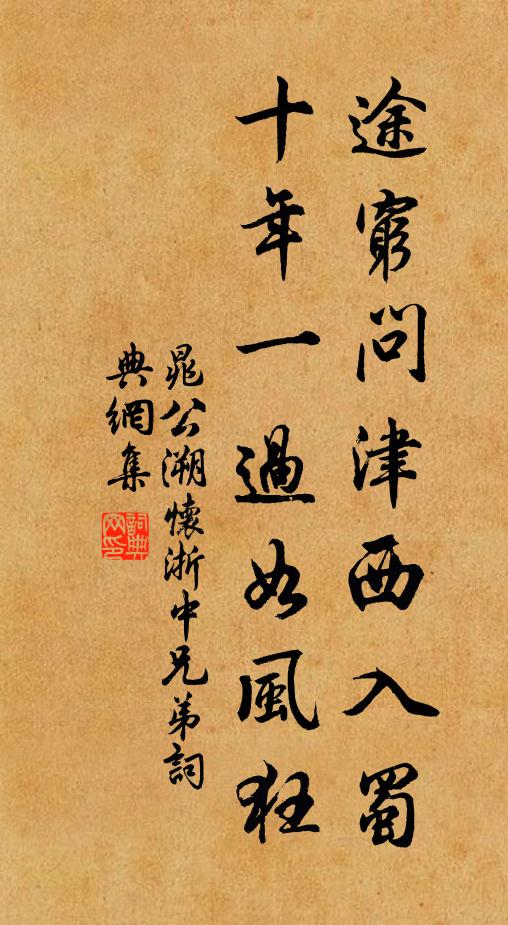 途窮問津西入蜀
十年一過如風狂
晁公溯懷浙中兄弟詞
典網集
詞典網印